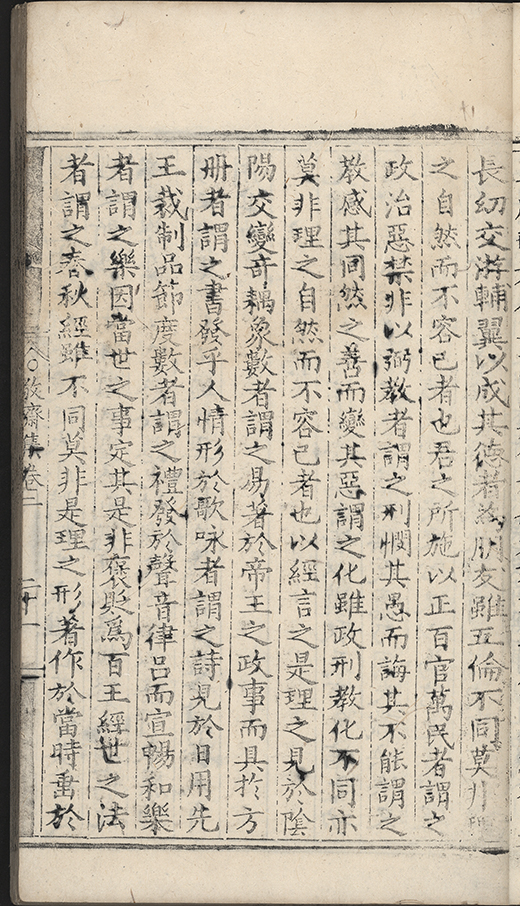 長幼交游輔翼以成其德者為朋友雖五倫不同莫非理
之自然而不容已者也君之所施以正百官萬民者謂之
政治惡禁非以弼教者謂之刑憫其愚而誨其不能謂之
教感其同然之善而變其惡謂之化雖政刑教化不同亦
莫非理之自然而不容已者也以經言之是理之見於陰
陽交變奇耦象數者謂之易著於帝王之政事而具扵方
冊者謂之書發乎人情形於歌咏者謂之詩見於日用先
王裁制品節度數者謂之禮發於聲音律呂而宣暢和樂
者謂之樂因當世之事定其是非褒貶爲百王經世之法
者謂之春秋經雖不同莫非是理之形著作於當時垂於
敬齋集卷二 二十一